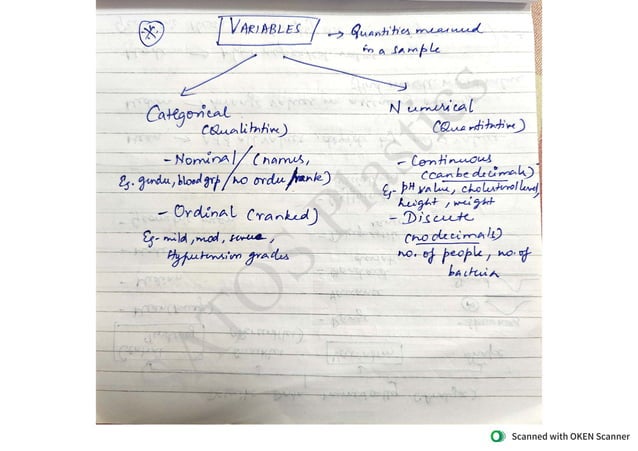 VARIABLES → Quantities measured
in a sample
Categorical
(Qualitative)
- Nominal / (names,
Eg. gender, blood grp / no order / rank)
- Ordinal (ranked)
Eg - mild, mod, severe,
Hypertension grades
Numerical
(Quantitative)
- Continuous
(can be decimals)
Eg - pH value, cholesterol level,
height, weight
- Discrete
(no decimals)
no. of people, no. of
bacteria
Scanned with OKEN Scanner